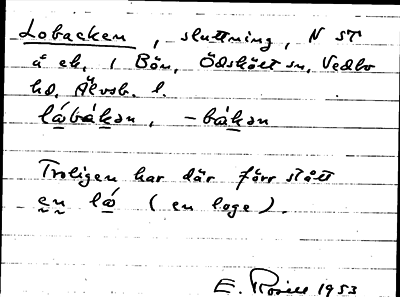 Lobacken, sluttning, N ST
å ek. 1 Bön, Ödskölt sn, Vedbo
hd, Älvsb. l.
lɷ́bákən, -bákən
Troligen har där förr stått
en lɷ́ (en loge).
E. Rosell 1953